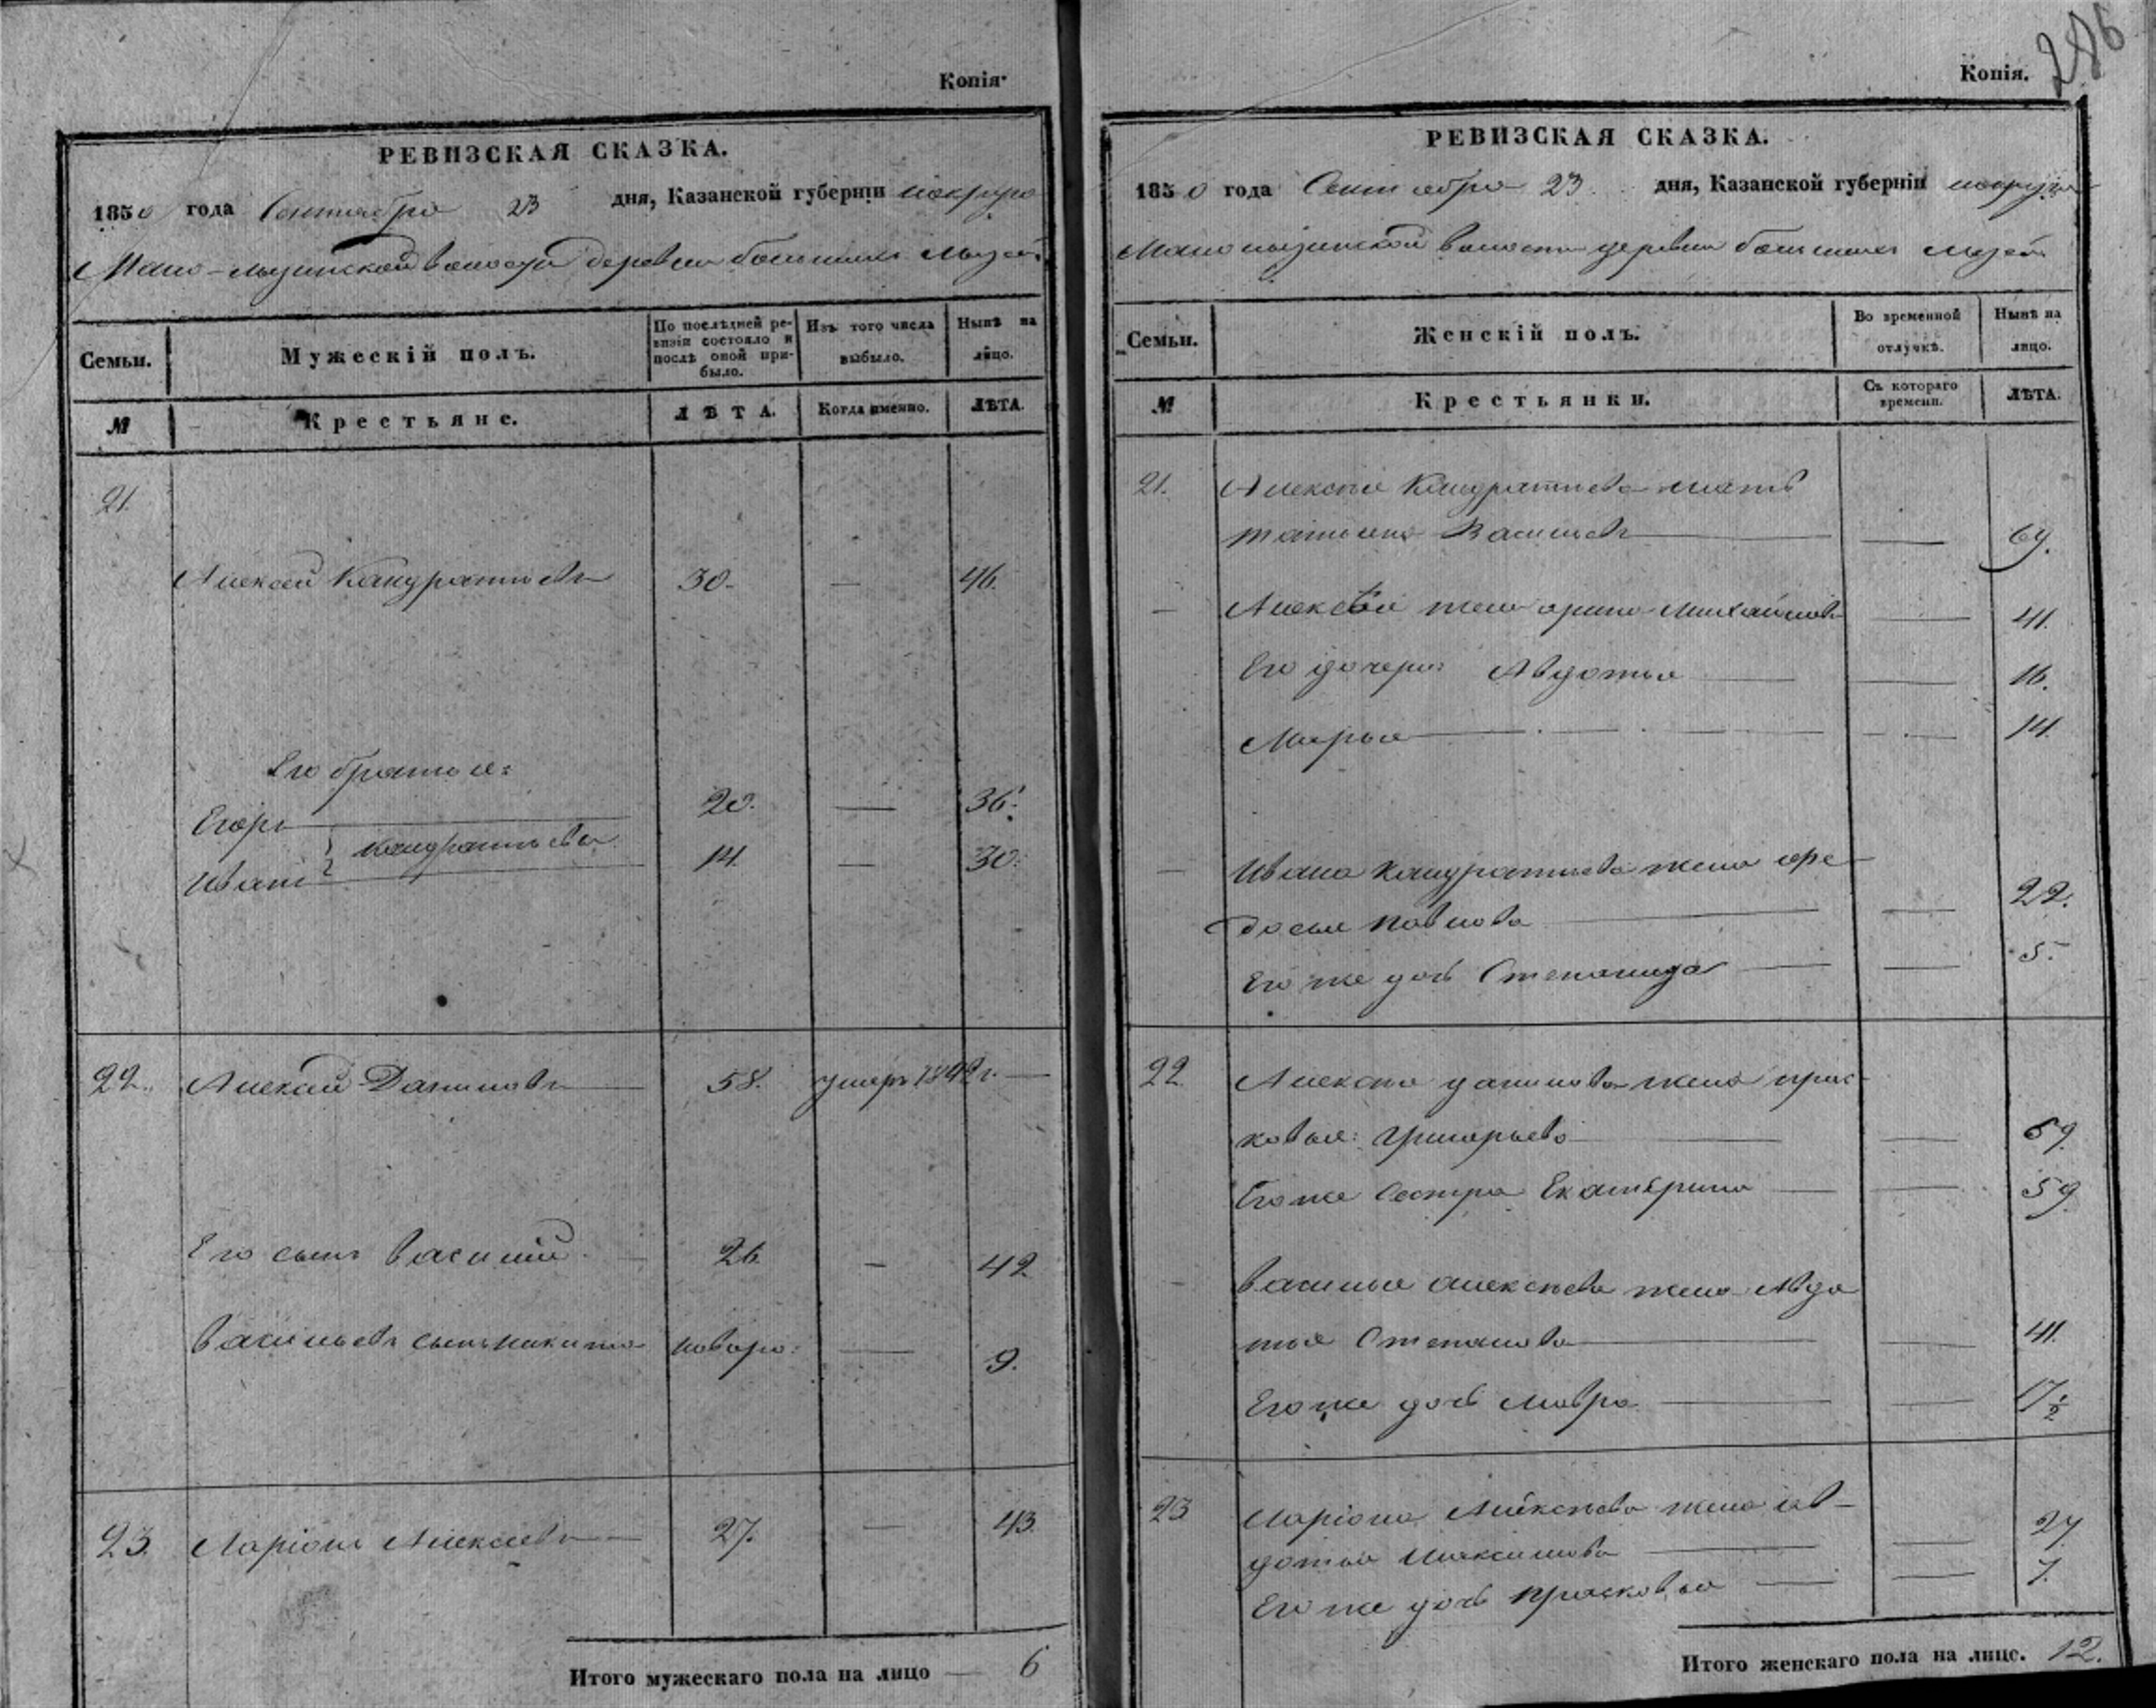 Копія.
РЕВИЗСКАЯ СКАЗКА.
1850 года Сентября 23 дня, Казанской губерніи
волости деревни большихъ
Семьи.
Мужескій полъ.
По послѣдней ревизіи состояло и послѣ оной прибыло.
Изъ того числа выбыло.
Нынѣ на лицо.
№
Крестьяне.
ЛѢТА.
Когда именно.
ЛѢТА.
21.
Алексей Кандратьевъ 30. — 46.
Его братья:
Егоръ 20. — 36.
Кандратьевы
Иванъ 14. — 30.
22. Алексей Даниловъ 58. умеръ 1842 г. —
Его сынъ Василий 26. — 42
Васильевъ сынъ Никита новоро: — 9.
23. Ларіонъ Алексеевъ — 27. — 43.
Итого мужескаго пола на лицо — 6
286
Копія.
РЕВИЗСКАЯ СКАЗКА.
1850 года Сентебря 23 дня, Казанской губерніи
волости деревни большихъ
Семьи.
Женскій полъ.
Во временной отлучкѣ.
Нынѣ на лицо.
№
Крестьянки.
Съ котораго времени.
ЛѢТА.
21. Алексѣя Кандратьева мать
татьяна Васильева — — 69.
— Алексѣя жена арина Михайлова — 41.
Его дочери: Авдотья — — 16.
Марья — — 14.
— Ивана Кандратьева жена фе-
досья Павлова — — 22.
Его же дочь Степанида — — 5.
22. Алексѣя данилова жена прас-
ковья: Григорьева — — 69.
Его же Сестра Екатерина — — 59.
— Василья алексѣева жена Авдо
тья Степанова — — 41.
Его же дочь Мавра — — 17½
23 Ларіона Алексѣева жена ав-
дотья Максимова — — 27.
Его же дочь прасковья — — 7.
Итого женскаго пола на лицо. 12.